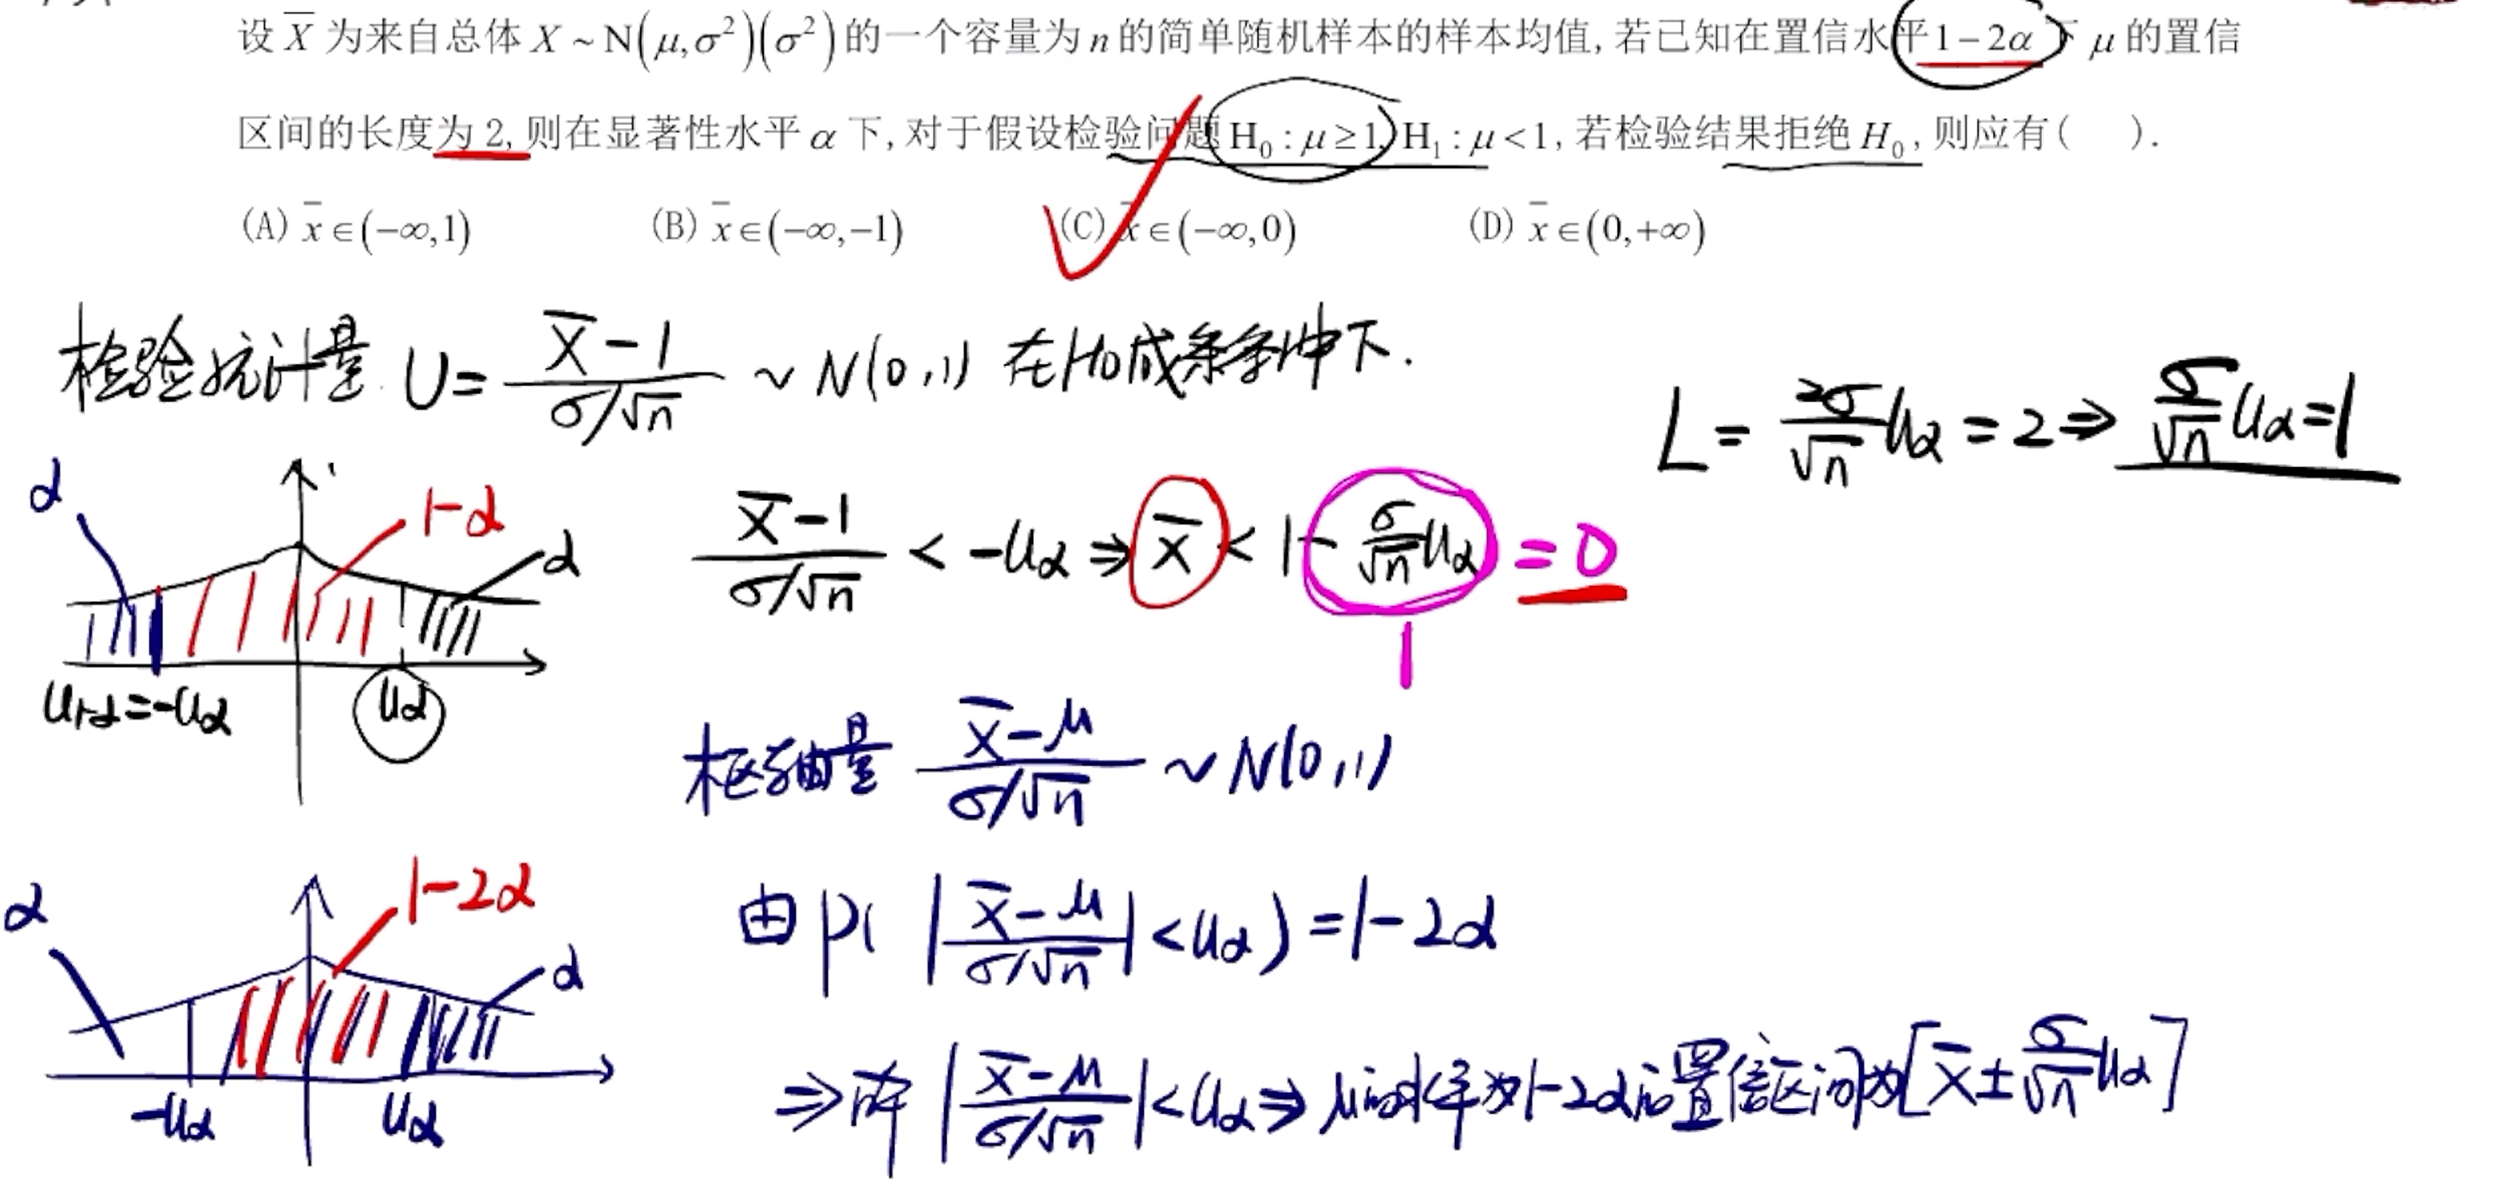 设 X̄ 为来自总体 X ~ N(μ,σ²)(σ²)的一个容量为 n 的简单随机样本的样本均值, 若已知在置信水平 1-2α 下 μ 的置信
区间的长度为 2, 则在显著性水平 α 下, 对于假设检验问题 H₀: μ≥1, H₁: μ<1, 若检验结果拒绝 H₀, 则应有(    ).
(A) x̄∈(-∞,1)    (B) x̄∈(-∞,-1)    (C) x̄∈(-∞,0)    (D) x̄∈(0,+∞)
检验统计量. U = (X̄-1)/(σ/√n) ~ N(0,1) 在H0成条条件下.
L = (2σ/√n) uα = 2 ⇒ (σ/√n) uα = 1
α    1-α    α
u₁₋α = -uα    uα
(X̄-1)/(σ/√n) < -uα ⇒ X̄ < 1 - (σ/√n) uα = 0
1
枢轴量 (X̄-μ)/(σ/√n) ~ N(0,1)
α    1-2α    α
-uα    uα
由 P( |(X̄-μ)/(σ/√n)| < uα ) = 1-2α
⇒ 解 |(X̄-μ)/(σ/√n)| < uα ⇒ μ 的水平为1-2α的置信区间为[X̄ ± (σ/√n) uα]